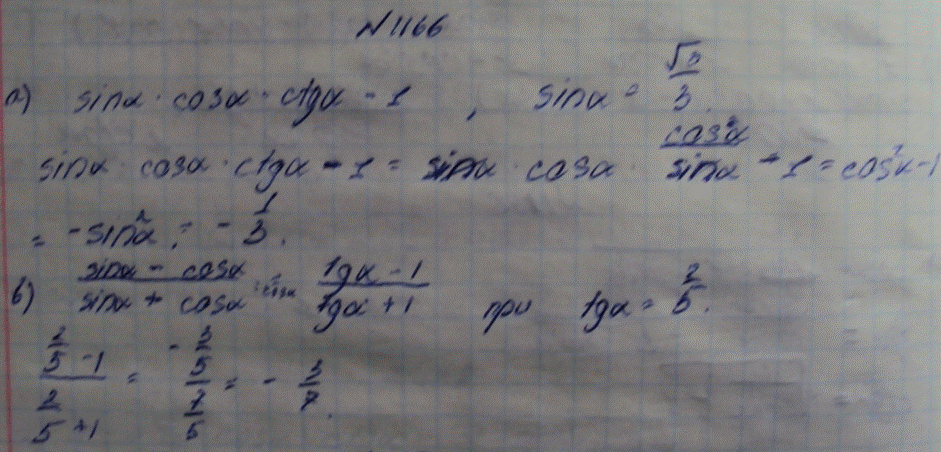 №1166
а) sinα · cosα · ctgα - 1 , sinα = √3/3.
sinα · cosα · ctgα - 1 = sinα · cosα · cosα/sinα - 1 = cos²α - 1
= -sin²α = -1/3.
в) (sinα - cosα)/(sinα + cosα) = (tgα - 1)/(tgα + 1) при tgα = 2/5.
(2/5 - 1)/(2/5 + 1) = (-3/5)/(7/5) = -3/7.